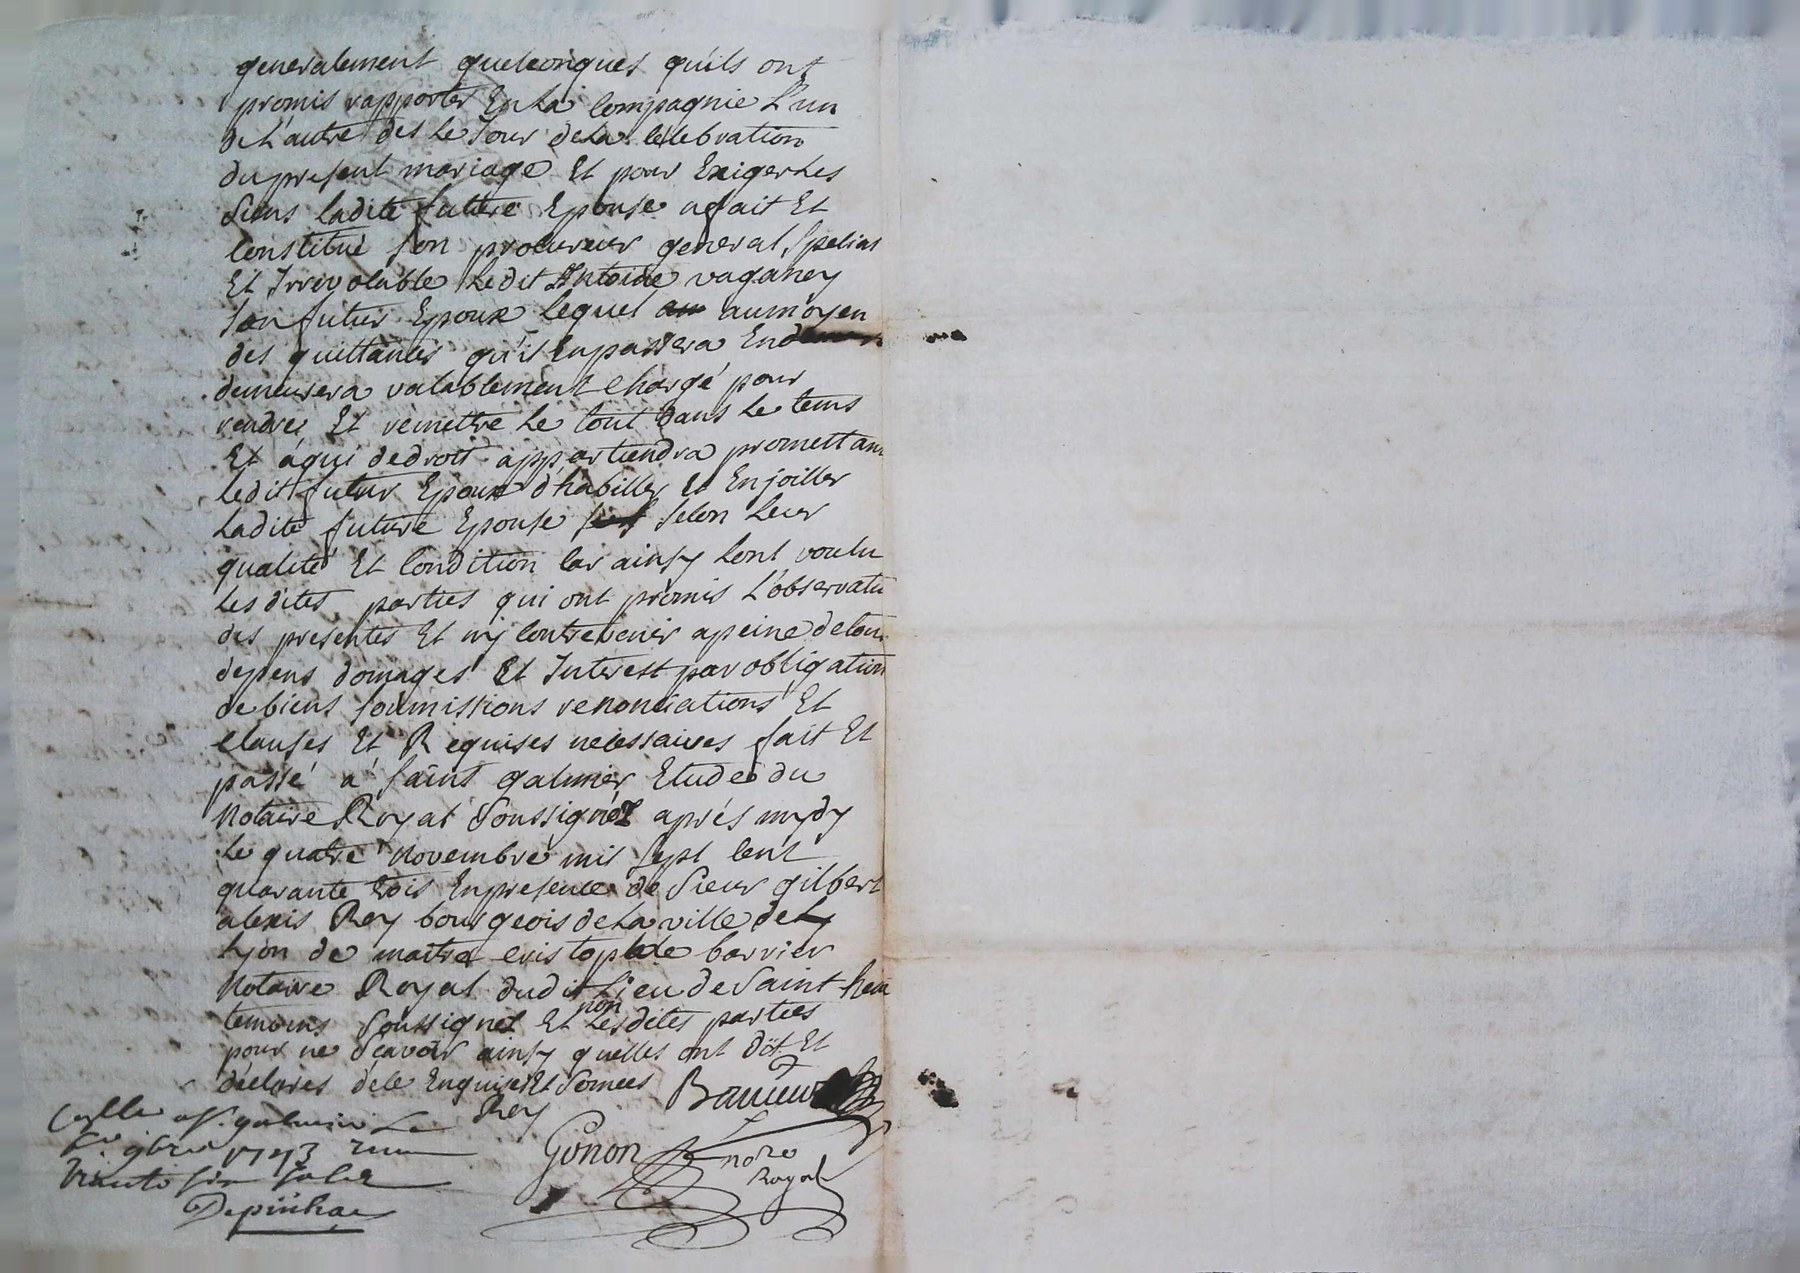 generalement quelconques quils ont
promis rapporter En La Compagnie L'un
de L'autre des Le Jour de La Celebration
du present mariage Et pour Exiger Les
Siens Ladite future Epouse a fait Et
Constitué son procureur general, Special
Et Irrevocable Ledit Antoine vaganey
son futur Epoux lequel au moyen
des quittances qu'il En passera En
demeurera valablement Chargé pour
rendre Et remettre Le tout dans Le tems
Et á qui de droit appartiendra promettant
ledit futur Epoux d'habiller Et Enjoiller
Ladite future Epouse Selon Leur
qualité Et Condition Car ainsy Lont voulu
Les dites parties qui ont promis L'observatio
des presentes Et ny Contrevenir a peine de tous
depens domages Et Interest par obligation
de biens soumissions renonciations Et
Clauses Et Requises necessaires fait Et
passé a' saint galmier Etude du
Notaire Royal Soussigné aprés mydy
Le quatre Novembre mil sept Cent
quarante trois En presence de Sieur gilbert
alexis Rey bourgeois de La ville de Ly
Lyon de maitre Cristophle barrier
Notaire Royal dudit Lieu de Saint hean
temoins Soussignes Et non Lesdites parties
pour ne Scavoir ainsy quelles ont dit Et
déclarés de ce Enquises Et Somées Barrieur
Rey
Gonon
no.re
Royal
a St. galmier Le
9bre 1743
trente six sols
Depinhac